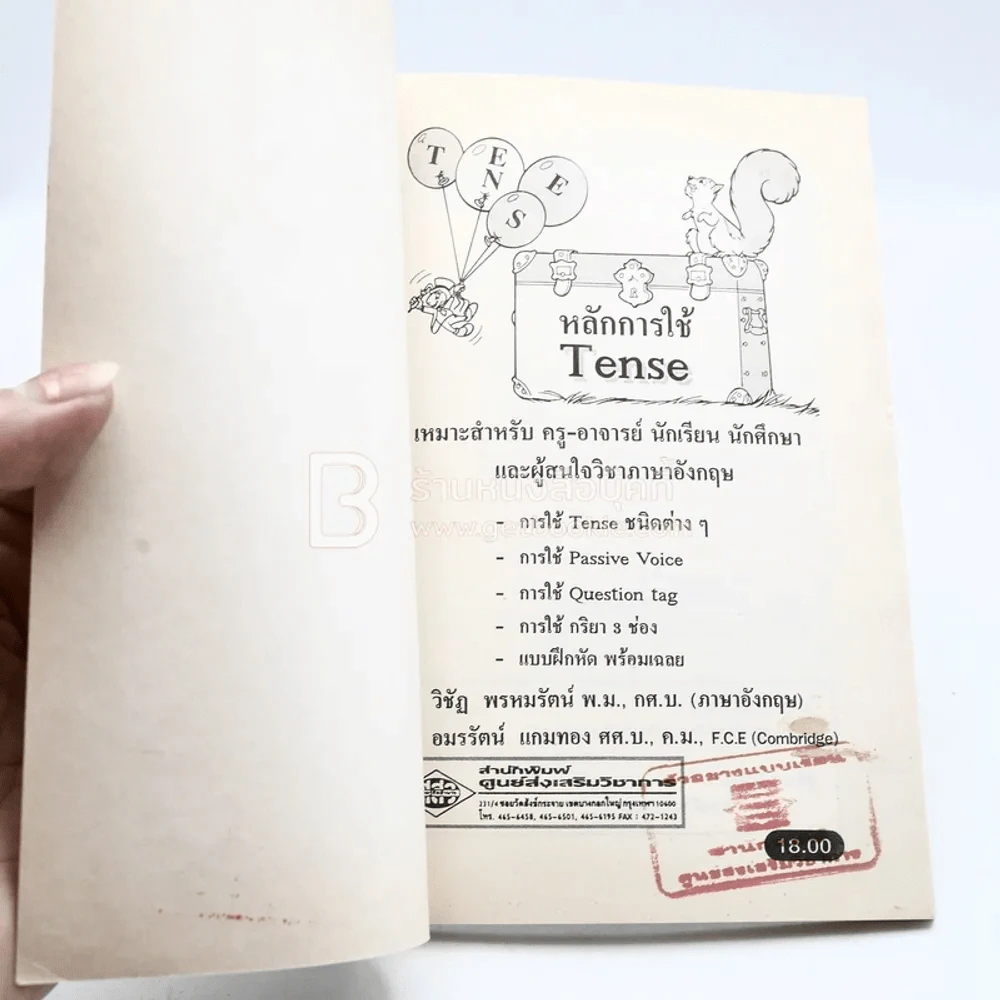 T
E
N
S
E
หลักการใช้
Tense
เหมาะสำหรับ ครู-อาจารย์ นักเรียน นักศึกษา
และผู้สนใจวิชาภาษาอังกฤษ
ร้านหนังสือบุคกี้
www.getbookie.com
- การใช้ Tense ชนิดต่าง ๆ
- การใช้ Passive Voice
- การใช้ Question tag
- การใช้ กริยา 3 ช่อง
- แบบฝึกหัด พร้อมเฉลย
วิชัฏ พรหมรัตน์ พ.ม., กศ.บ. (ภาษาอังกฤษ)
อมรรัตน์ แกมทอง ศศ.บ., ค.ม., F.C.E (Combridge)
สำนักพิมพ์
ศูนย์ส่งเสริมวิชาการ
231/4 ซอยวัดสังข์กระจาย เขตบางกอกใหญ่ กรุงเทพฯ 10600
โทร. 465-6458, 465-6501, 465-6195 FAX : 472-1243
ตัวอย่างแบบเรียน
18.00
ศูนย์ส่งเสริมวิชาการ